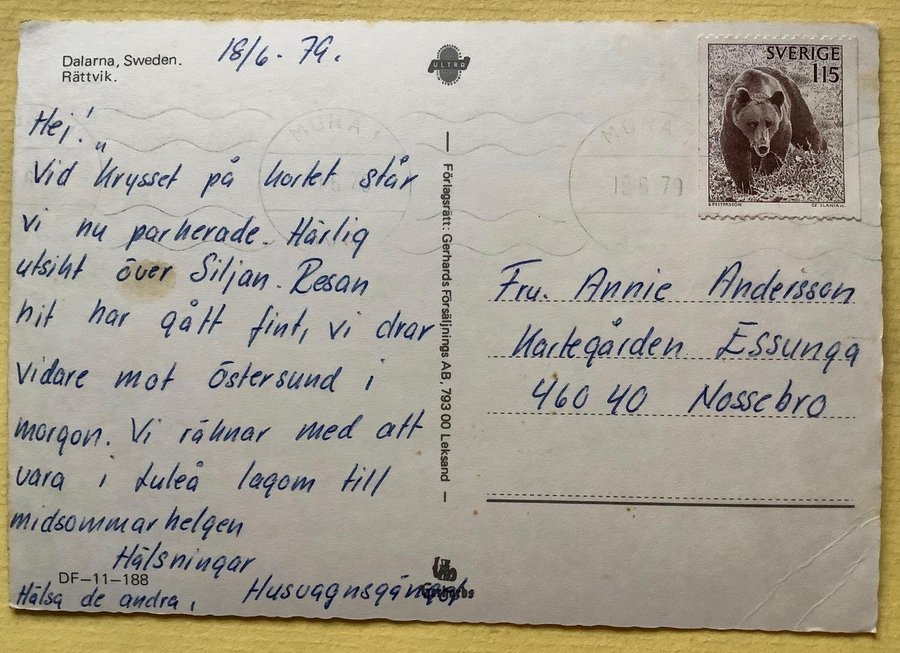 Dalarna, Sweden.
Rättvik.
18/6-79.
ULTRA
Hej!
Vid krysset på kortet står
vi nu parkerade. Härlig
utsikt över Siljan. Resan
hit har gått fint, vi drar
vidare mot Östersund i
morgon. Vi räknar med att
vara i Luleå lagom till
midsommarhelgen
Hälsningar
Husvagnsgänget
DF-11-188
Hälsa de andra.
Förlagsrätt: Gerhards Försäljnings AB, 793 00 Leksand
SVERIGE
115
MORA 1
MORA
18 6 79
Fru. Annie Andersson
Kartegården Essunga
460 40 Nossebro